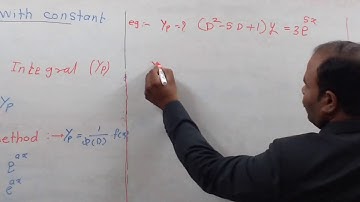 with constant
Integral (Yp)
Yp
method :→ Yp = 1/Φ(D) f(x)
e^ax
e^ax
eg:- Yp = ? (D²-5D+1)y = 3e^5x